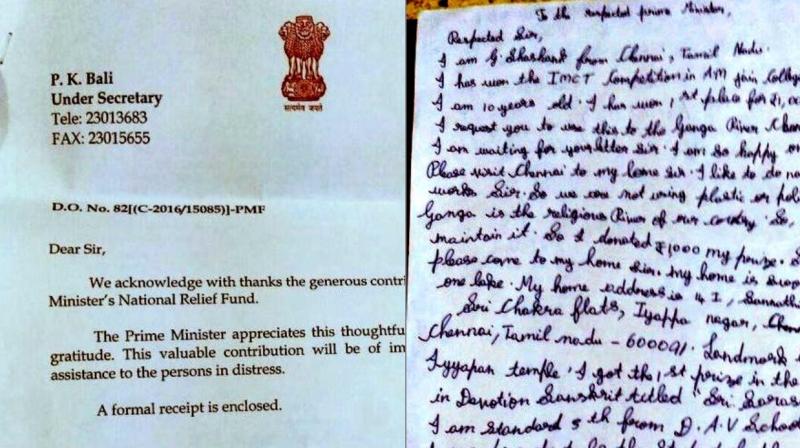 P. K. Bali
Under Secretary
Tele: 23013683
FAX: 23015655
सत्यमेव जयते
D.O. No. 82[(C-2016/15085)]-PMF
Dear Sir,
We acknowledge with thanks the generous contri
Minister's National Relief Fund.
The Prime Minister appreciates this thoughtfu
gratitude. This valuable contribution will be of im
assistance to the persons in distress.
A formal receipt is enclosed.
To the respected prime Minister,
Respected Sir,
I am G. Shashank from Chennai, Tamil Nadu.
I has won the IMCT Competition in AM jain Colleg
I am 10 years old. I has won 1st place for ₹1,00
I request you to use this to the Ganga River Clean
I am waiting for your letter Sir. I am so happy
Please visit Chennai to my home sir. I like to do
works Sir. So we are not using plastic or
Ganga is the religious River of our country. So,
maintain it. So I donated ₹1000 my prize.
please come to my home Sir. my home is
one lake. My home address is 4 I,
Sri Chakra flats, Iyappa nagar,
Chennai, Tamil nadu - 600091. Landmark
Iyyapan temple. I got the 1st prize in the
in Devotion Sanskrit titled "Sri Saras
I am standard 5th from D.A.V School